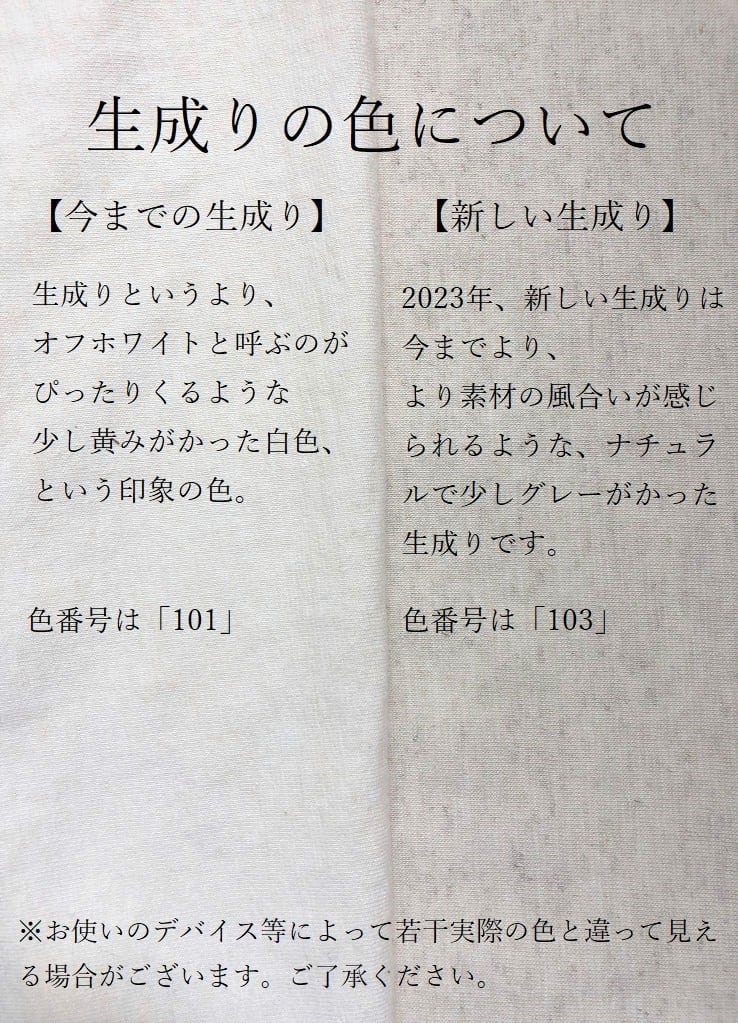 生成りの色について
【今までの生成り】
生成りというより、
オフホワイトと呼ぶのが
ぴったりくるような
少し黄みがかった白色、
という印象の色。
色番号は「101」
【新しい生成り】
2023年、新しい生成りは
今までより、
より素材の風合いが感じ
られるような、ナチュラ
ルで少しグレーがかった
生成りです。
色番号は「103」
※お使いのデバイス等によって若干実際の色と違って見え
る場合がございます。ご了承ください。